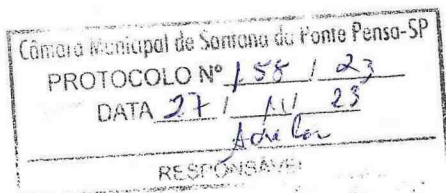 Câmara Municipal de Santana da Ponte Pensa-SP
PROTOCOLO Nº 158 / 23
DATA 27 / 11 / 23
RESPONSÁVEL